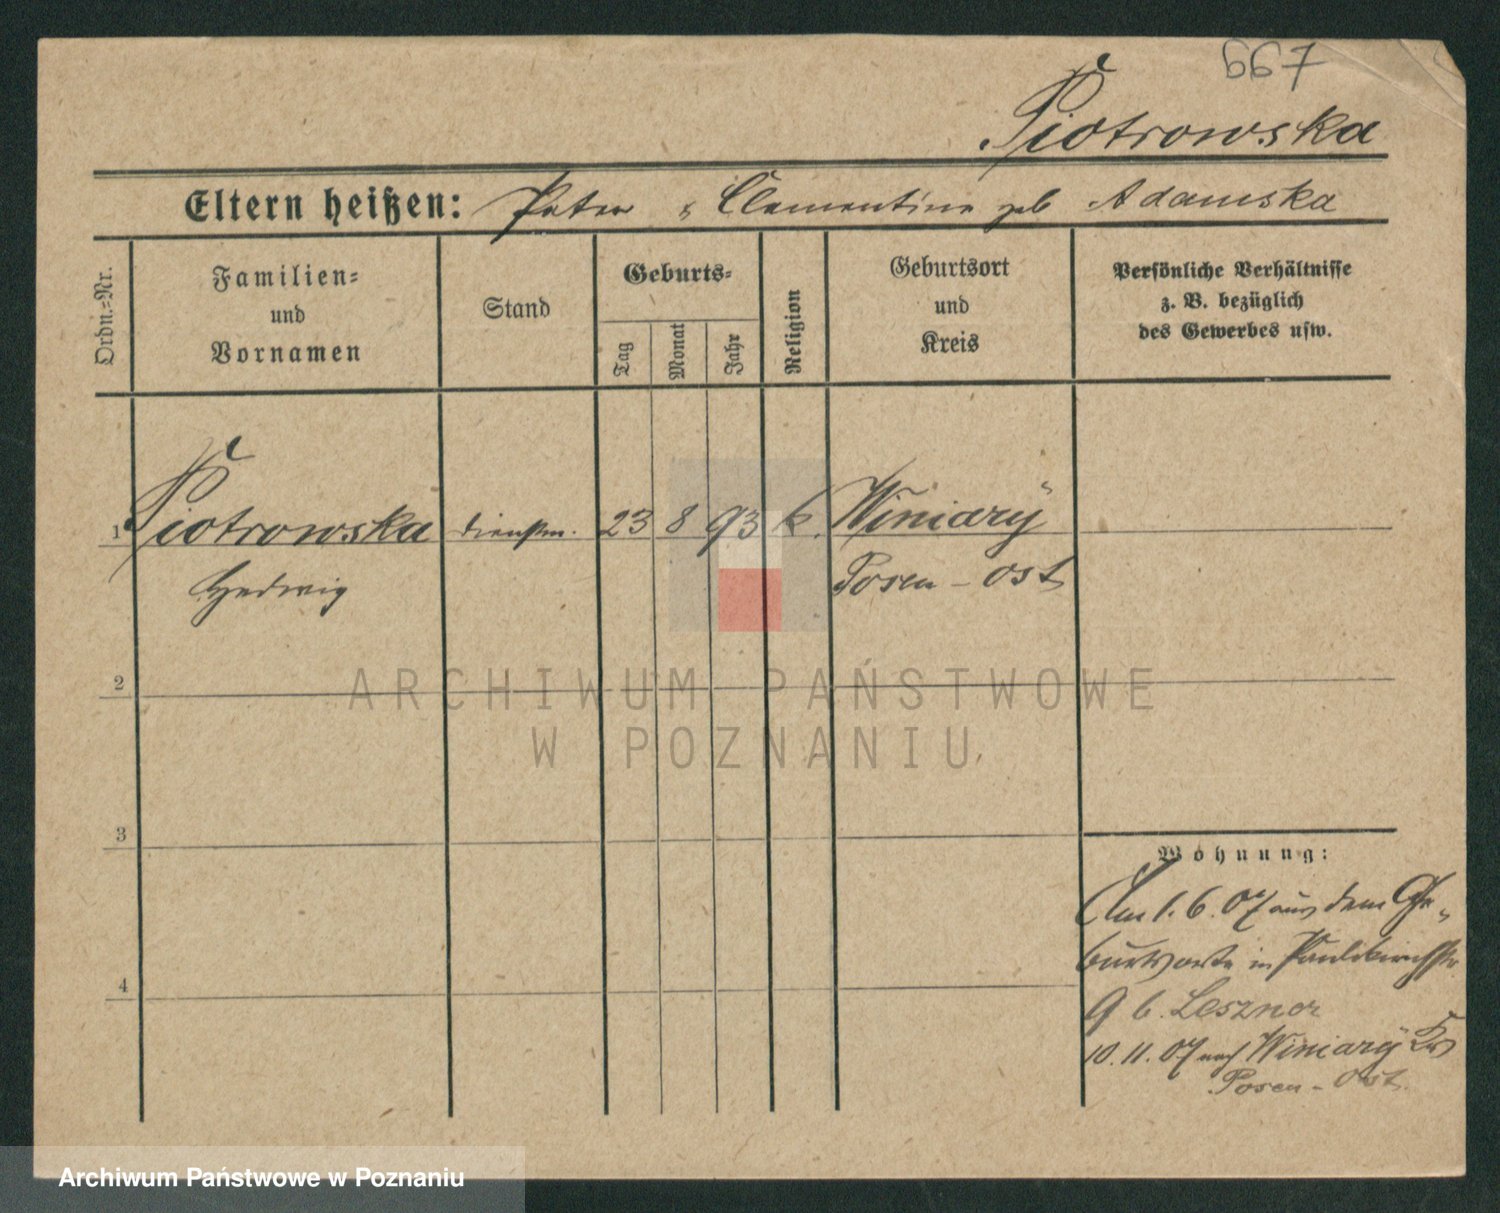 667
Piotrowska
Eltern heißen: Peter & Clementine geb Adamska
Ordn.=Nr.
Familien=
und
Vornamen
Stand
Geburts=
Tag
Monat
Jahr
Religion
Geburtsort
und
Kreis
Persönliche Verhältnisse
z. B. bezüglich
des Gewerbes usw.
1 Piotrowska dienstm. 23 8 93 k. Winiary
Hedwig Posen - Ost
2
3
4
Wohnung:
Am 1. 6. 07 aus dem Ge-
burtsorte in Paulikirchstr.
9 b. Leszner
10. 11. 07 nach Winiary Krs
Posen - Ost.
ARCHIWUM PAŃSTWOWE
W POZNANIU
Archiwum Państwowe w Poznaniu